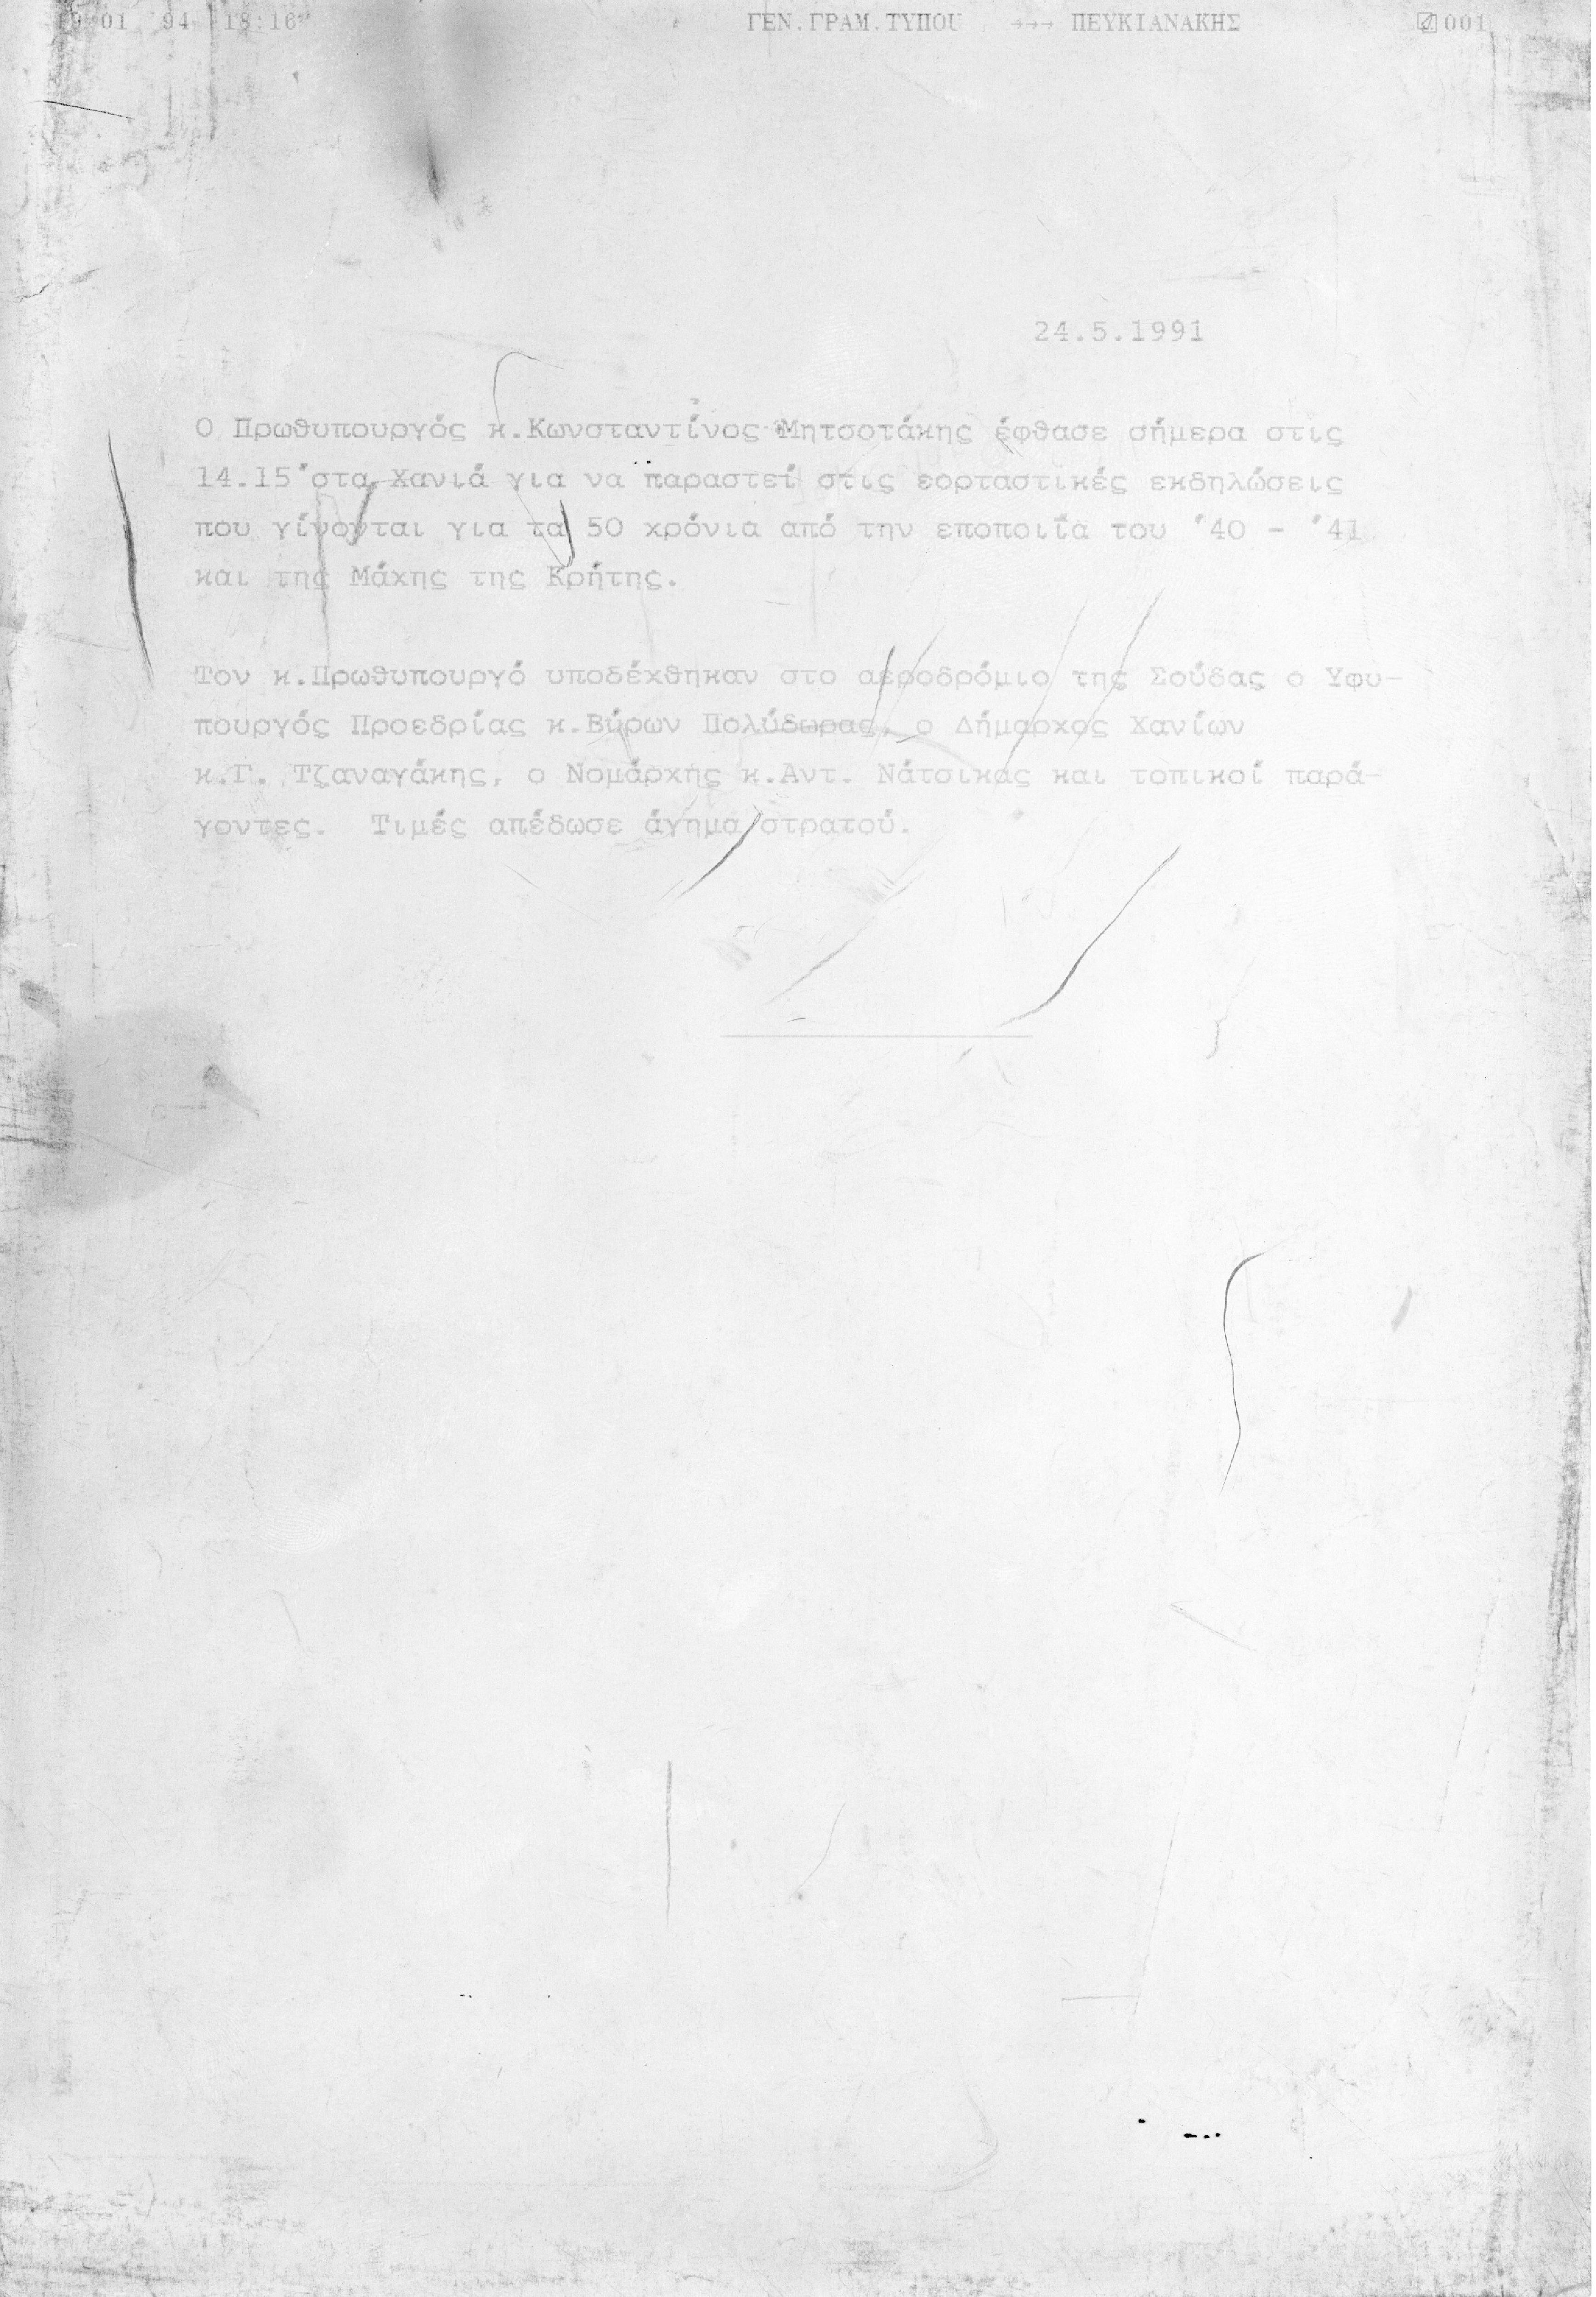 19/01 '94 18:16 ΓΕΝ.ΓΡΑΜ.ΤΥΠΟΥ →→→ ΠΕΥΚΙΑΝΑΚΗΣ 001
24.5.1991
Ο Πρωθυπουργός κ.Κωνσταντίνος Μητσοτάκης έφθασε σήμερα στις
14.15 στα Χανιά για να παραστεί στις εορταστικές εκδηλώσεις
που γίνονται για τα 50 χρόνια από την εποποιΐα του '40 - '41
και της Μάχης της Κρήτης.
Τον κ.Πρωθυπουργό υποδέχθηκαν στο αεροδρόμιο της Σούδας ο Υφυ-
πουργός Προεδρίας κ.Βύρων Πολύδωρας, ο Δήμαρχος Χανίων
κ.Γ. Τζαναγάκης, ο Νομάρχης κ.Αντ. Νάτσικας και τοπικοί παρά-
γοντες. Τιμές απέδωσε άγημα στρατού.